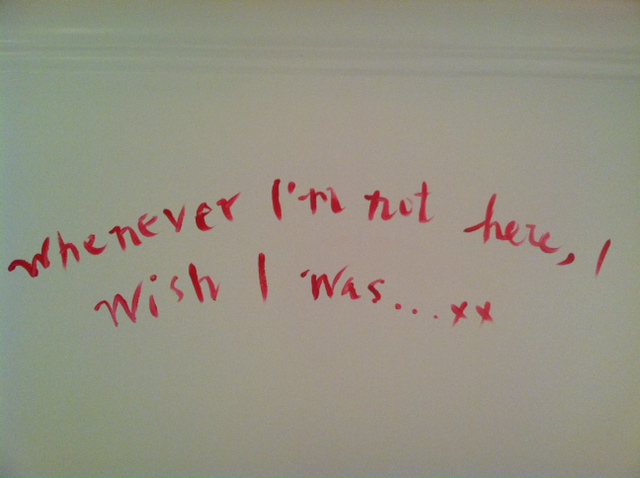 Whenever I'm not here, I
Wish I was...xx